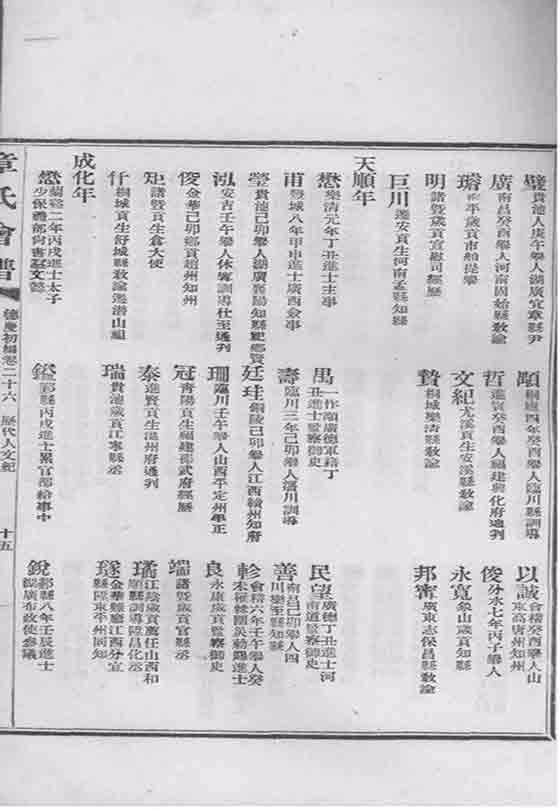 璧 貴池人庚午舉人湖廣宜章縣尹
順 桐廬四年癸酉舉人臨川縣訓導
以誠 會稽癸酉舉人山
東高唐州知州
廣 南昌癸酉舉人河南固始縣教諭
哲 進賢癸酉舉人福建興化府通判
俊 分水七年丙子舉人
平歲貢市舶提舉
文紀 尤溪貢生安溪縣教諭
永寬 象山歲貢知縣
明 諸暨歲貢宣慰司經歷
贄 桐城樂清縣教諭
邦甯 廣東志保昌縣教諭
巨川 遷安貢生河南孟縣知縣
天順年
懋 樂清元年丁丑進士主事
禺 一作順廣德軍籍丁
丑進士監察御史
民望 廣德丁丑進士河
南道監察御史
甫 城八年甲申進士廣西僉事
壽 臨川三年己卯舉人川訓導
善 南昌己卯舉人四
川縣知縣
瑩 貴池己卯舉人湖廣襄陽知縣祀鄉賢
廷珪 銅陵己卯舉人江西贛州知府
軫 會稽六年壬午舉人癸
未進士
泓 安吉壬午舉人休寧訓導仕至通判
珊 臨川壬午舉人山西平定州學正
良 永康歲貢監察御史
俊 金華己卯鄉貢趙州知州
冠 青陽貢生福建邵武府經歷
端 諸暨歲貢官縣丞
矩 諸暨貢生倉大使
泰 進賢貢生溫州府通判
璠 江陰歲貢薦任山西和
順縣訓導陞昌化丞
仟 桐城貢生舒城縣教諭遷潛山
瑞 貴池歲貢江寧縣丞
璲 金華經廳江西分宜
縣陞東平州同知
成化年
懋 蘭谿二年丙戌進士太子
少保禮部尚書諡文懿
鎰 鄞縣丙戌進士累官都給事中
銳 鄞縣八年壬辰進士
湖廣布政使參議
章氏會譜 德慶初編卷二十六 歷代人文紀 十五